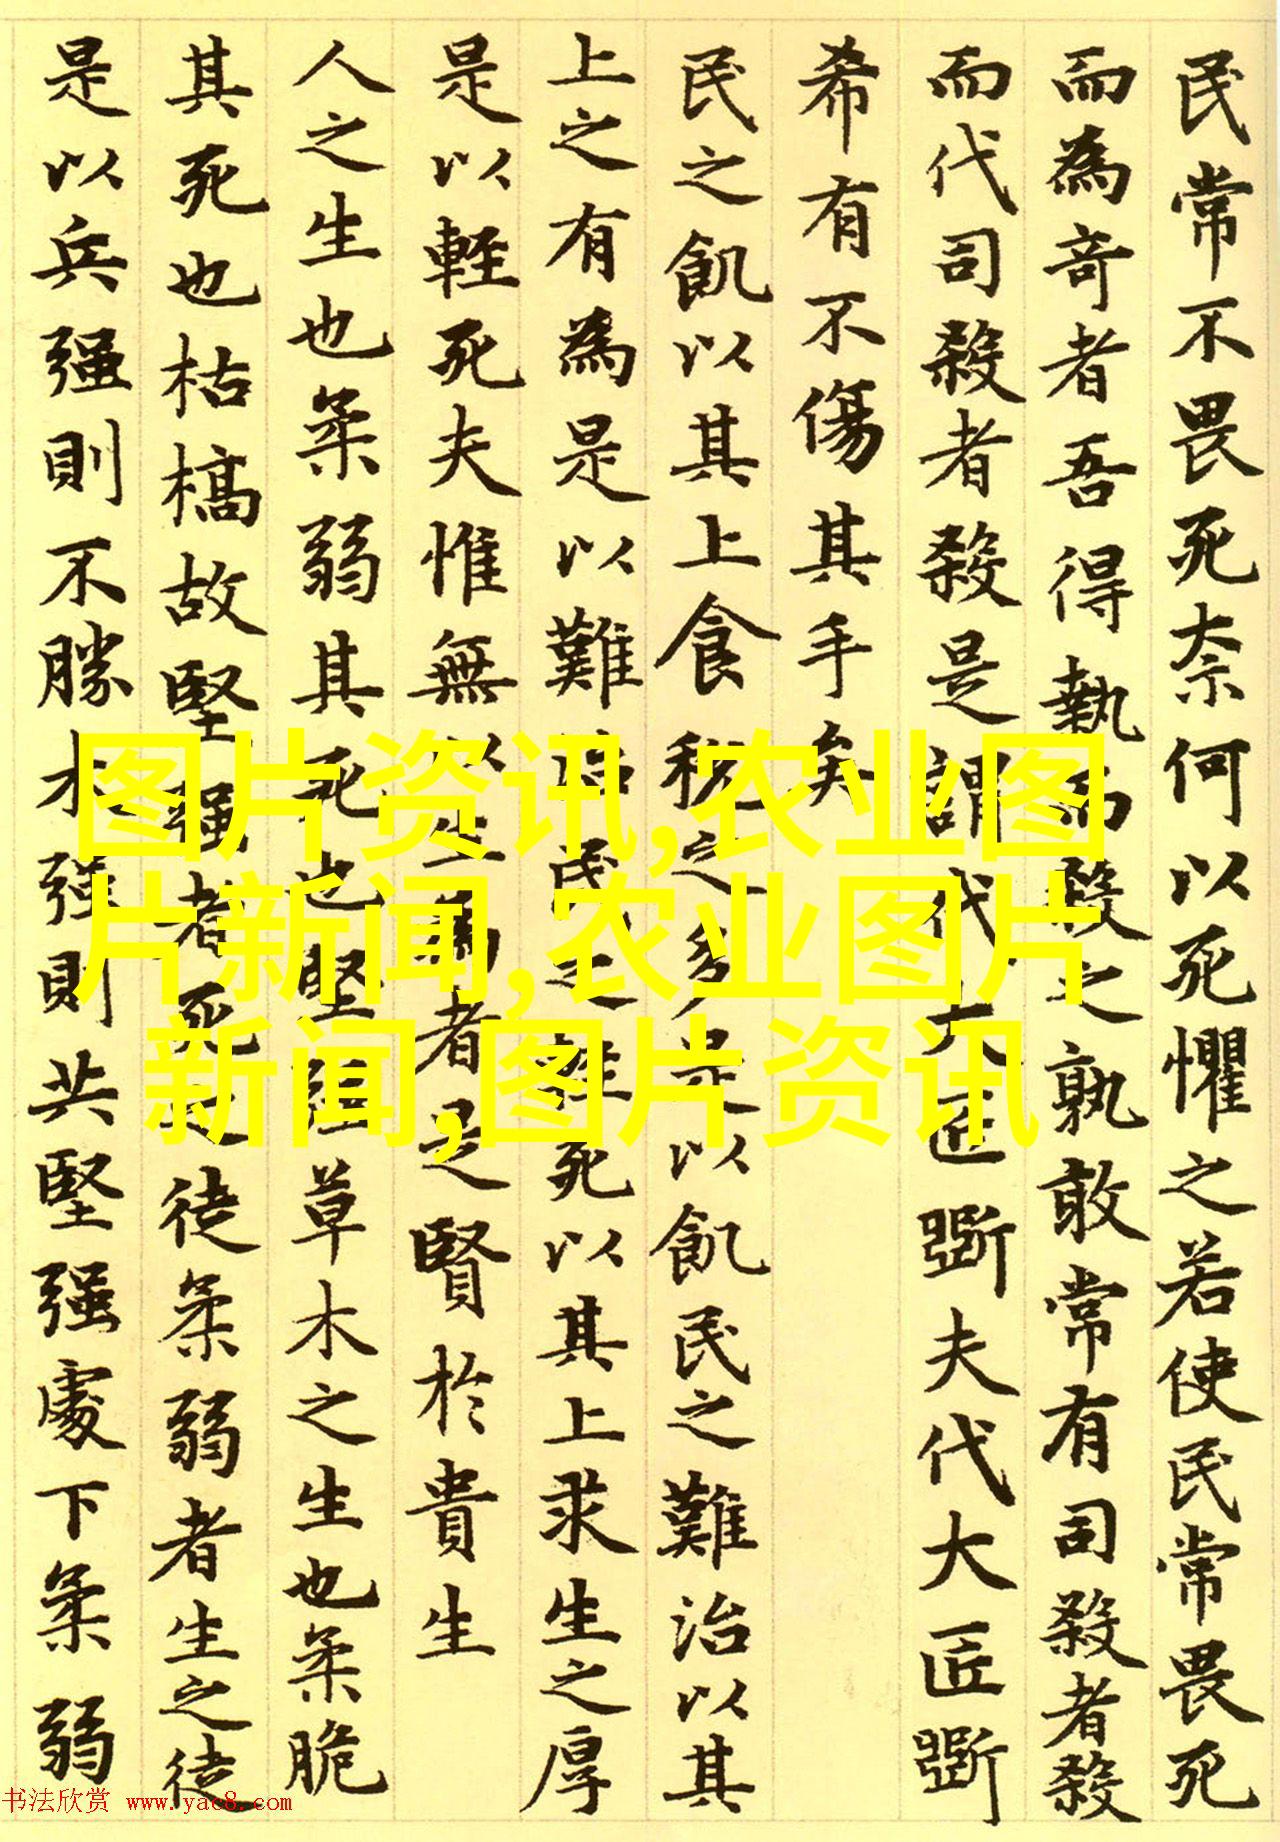 民常不畏死奈何以死懼之若使民常畏死
而為奇者吾得執而殺之孰敢常有司殺者殺
而代司殺者殺是謂代大匠斲夫代大匠斲
希有不傷其手矣
民之飢以其上食稅之多是以飢民之難治以其
上之有為是以難治民之輕死以其上求生之厚
是以輕死夫惟無以生為者是賢於貴生
人之生也柔弱其死也堅強草木之生也柔脆
其死也枯槁故堅強者死之徒柔弱者生之徒
是以兵强則不勝木强則共堅强處下柔弱
图片资讯,农业图
片新闻,农业图片
新闻,图片资讯
书法欣赏 www.yac8.com